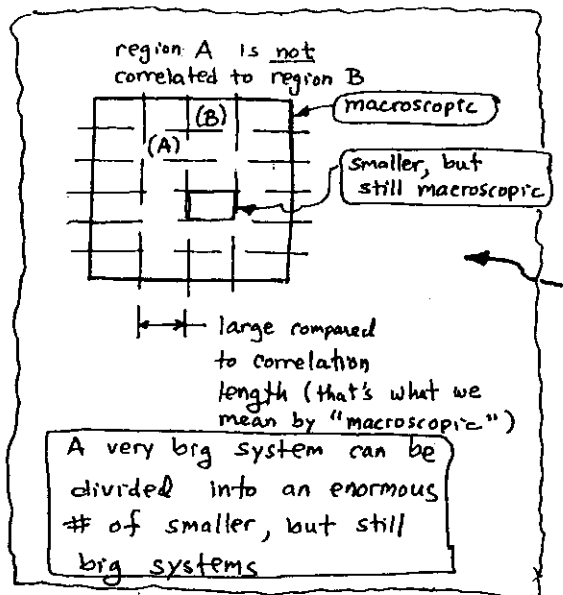 region A is not
correlated to region B
macroscopic
(B)
(A)
smaller, but
still macroscopic
large compared
to correlation
length (that's what we
mean by "macroscopic")
A very big system can be
divided into an enormous
# of smaller, but still
big systems